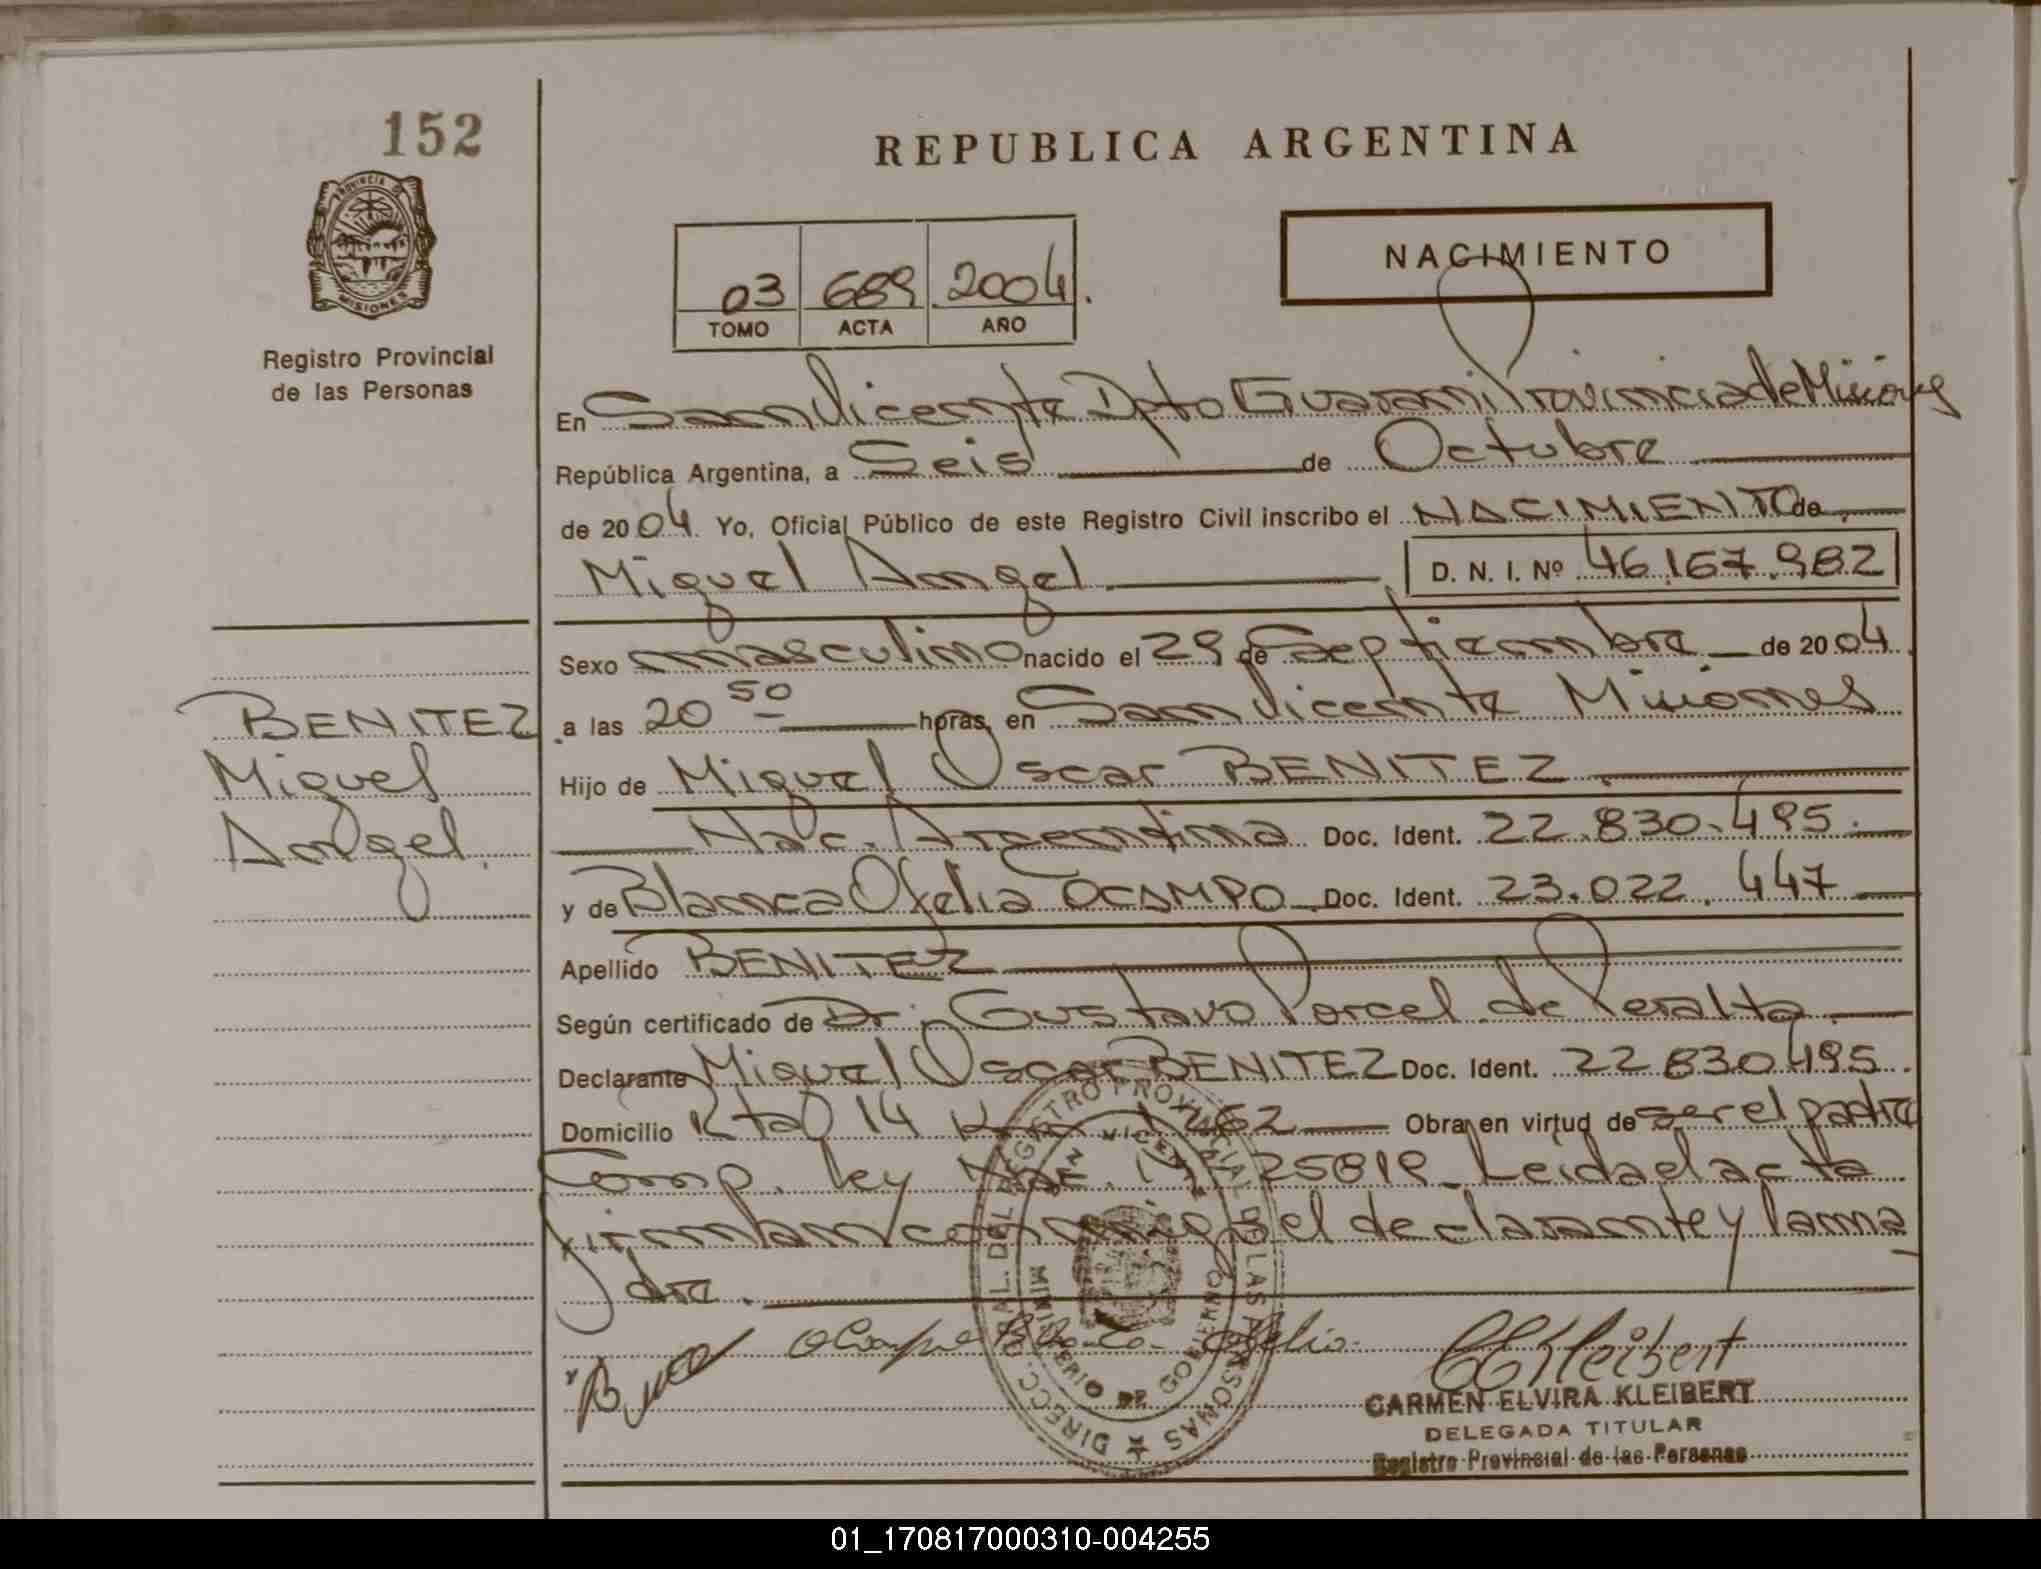 152
PROVINCIA DE
MISIONES
Registro Provincial
de las Personas
REPUBLICA ARGENTINA
NACIMIENTO
03 689 2004.
TOMO ACTA AÑO
En San Vicente Dpto Guarani Provincia de Misiones
República Argentina, a Seis de Octubre
de 2004. Yo, Oficial Público de este Registro Civil inscribo el NACIMIENTO de
Miguel Angel D. N. I. Nº 46.167.982
Sexo masculino nacido el 29 de Septiembre de 2004.
BENITEZ
Miguel
Angel.
a las 20 50 horas, en San Vicente Misiones
Hijo de Miguel Oscar BENITEZ.
Nac. Argentina Doc. Ident. 22.830.495.
y de Blanca Ofelia OCAMPO Doc. Ident. 23.022.447
Apellido BENITEZ
Según certificado de Dr. Gustavo Porcel de Peralta
Declarante Miguel Oscar BENITEZ Doc. Ident. 22.830.495.
Domicilio Rta 14 Km 1262 Obra en virtud de ser el padre
Comp. ley Nac. Nº 25819. Leida el acta
firman conmigo el declarante y la ma
dre.
Ocampo Blanca Ofelia
CEKleibert
CARMEN ELVIRA KLEIBERT
DELEGADA TITULAR
Registro Provincial de las Personas
DIRECC. GRAL. DEL REGISTRO PROVINCIAL DE LAS PERSONAS
SAN VICENTE
MINISTERIO DE GOBIERNO
01_170817000310-004255